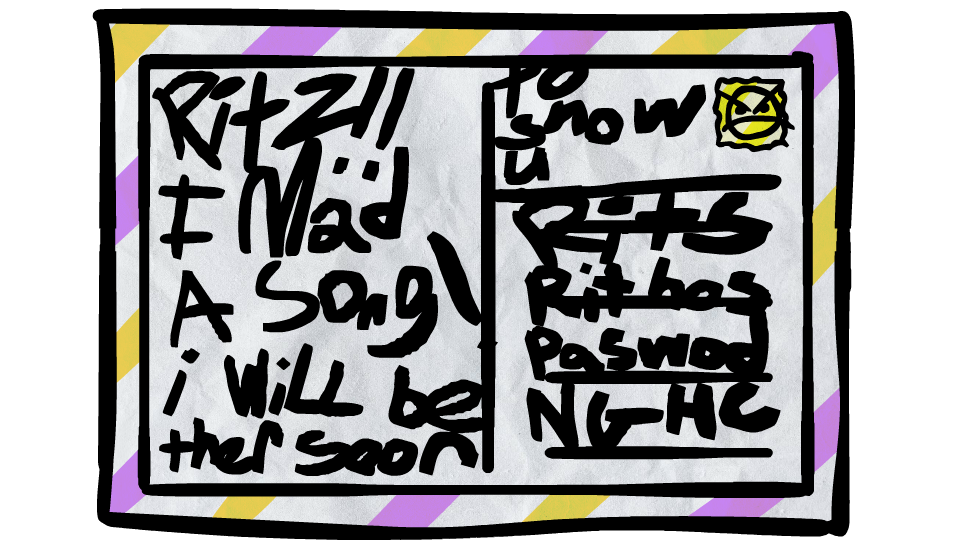 Ritz!!
I Mäd
A Song\
i will be
ther soon
to
snow
u
Rits
Rit hos
Paswod
NG-HC